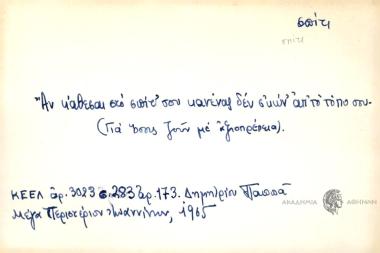 σπίτι
σπίτι
Ἂν κάθεσαι στὸ σπίτ' σου κανένας δὲν σ' κών' ἀπ' τὸ τόπο σου.
(Γιὰ ὅσους ζοῦν μὲ ἀξιοπρέπεια).
ΚΕΕΛ ἀρ. 3023 σ. 283 ἀρ. 173. Δημητρίου Παππᾶ
Μέγα Περιστέριον Ἰωαννίνων, 1965
ΑΚΑΔΗΜΙΑ ΑΘΗΝΩΝ